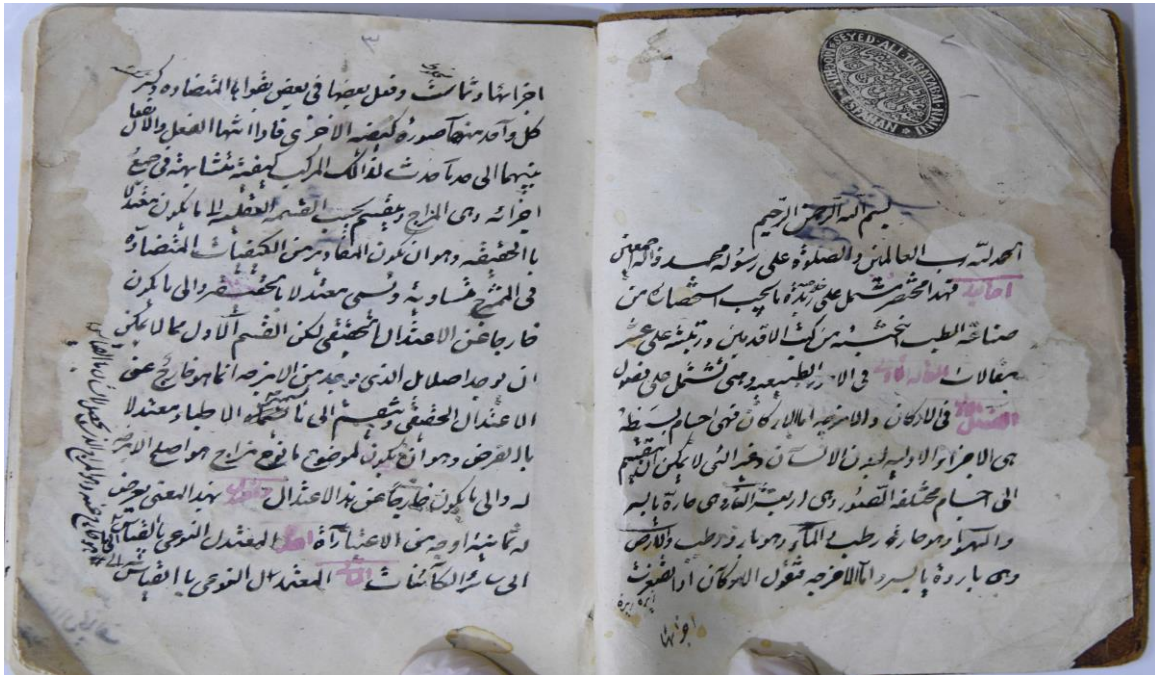 بسم الله الرحمن الرحيم
الحمد لله رب العالمين والصلوة على رسوله محمد وآله اجمعين
اما بعد فهذا مختصر مشتمل على ما يجب استحضاره من
صناعة الطب نتخبته من كتب الاقدمين ورتبته على عشر
مقالات المقالة الاولى في الامور الطبيعيه وهى تشتمل على فصول
الفصل الاول في الاركان والامزجه اما الاركان فهى اجسام بسيطة
هى الاجزاء الاوليه لبدن الانسان وغيره التى لا يمكن ان تنقسم
الى اجسام مختلفه الصور وهى اربعة النار وهى حارة يابسه
والهواء وهو حار رطب والماء وهو بارد رطب والارض
وهى باردة يابسه واما الامزجه فنقول الاركان اذا تصغرت
اجزائها
٣
اجزائها وتماست وفعل بعضها في بعض بقواها المتضاده وكسر
كل واحد منهما صورة كيفيه الاخرى فاذا انتهى الفعل والانفعال
بينهما الى حد ما حدث لذالك المركب كيفية متشابهة في جميع
اجزائه وهى المزاج وينقسم بحسب القسمه العقليه الى ما يكون معتدلا
بالحقيقه وهو ان تكون المقادير من الكيفيات المتضادة
في الممتزج متساوية ويسمى معتدلا بالحقيقه والى ما يكون
خارجا عن الاعتدال الحقيقى لكن القسم الاول مما لا يمكن
ان يوجد اصلا بل الذى يوجد من الامزجه انما هو خارج عن
الاعتدال الحقيقى وينقسم الى ما تسميه الاطباء معتدلا
بالفرض وهو ان يكون لموضوع ما نوع مزاج هو اصلح الامزجه
له والى ما يكون خارجا عن هذا الاعتدال والمعتدل بهذا المعنى يعرض
له ثمانية اوجه من الاعتبارات احدها المعتدل النوعى بالقياس
الى سائر الكائنات الثانى المعتدل النوعى بالقياس
SEYED-ALI-TABATABAI
ISFAHAN